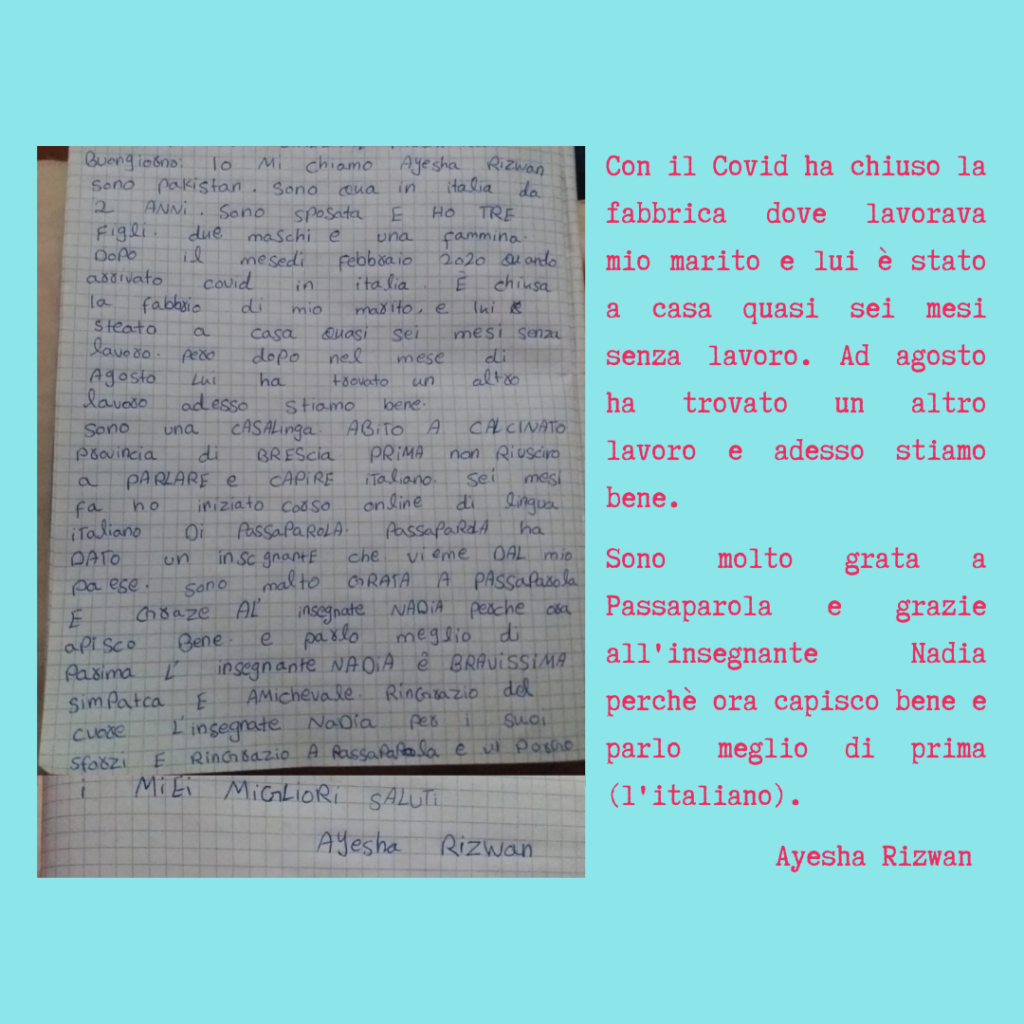 Buongiorno. Io Mi chiamo Ayesha Rizwan
sono pakistan. Sono qua in italia da
2 ANNI. Sono sposata E HO TRE
Figli. due maschi e una fammina.
Dopo il mesedi febbraio 2020 quando
arrivato covid in italia. È chiusa
la fabbrio di mio marito, e lui è
steato a casa quasi sei mesi senza
lavoro. pero dopo nel mese di
Agosto Lui ha trovato un altro
lavoro adesso stiamo bene.
sono una CASALinga. ABITO A CALCINATO
provincia di BREScia PRIMA non Riusciro
a PARLARE e CAPIRE italiano. sei mesi
fa ho iniziato corso online di lingua
italiano Di PassaPaROLA. PassaPaRola ha
DATO un insegnantE che vieme DAL mio
pa ese. sono malto GRATA A PASSaParola
E Graze AL' insegnate NADiA perche ora
aPISco Bene. e parlo meglio di
Parima L' insegnante NADiA ê BRAViSSIMA
simPatca E AMichevale. RinGrazio del
cuore L'insegnate NaDia per i suoi
sforzi E RinGrazio A PassaParola e vi Porgio
i MiEi MiGLiORi SALUTi
AYesha Rizwan
Con il Covid ha chiuso la
fabbrica dove lavorava
mio marito e lui è stato
a casa quasi sei mesi
senza lavoro. Ad agosto
ha trovato un altro
lavoro e adesso stiamo
bene.
Sono molto grata a
Passaparola e grazie
all'insegnante Nadia
perchè ora capisco bene e
parlo meglio di prima
(l'italiano).
Ayesha Rizwan